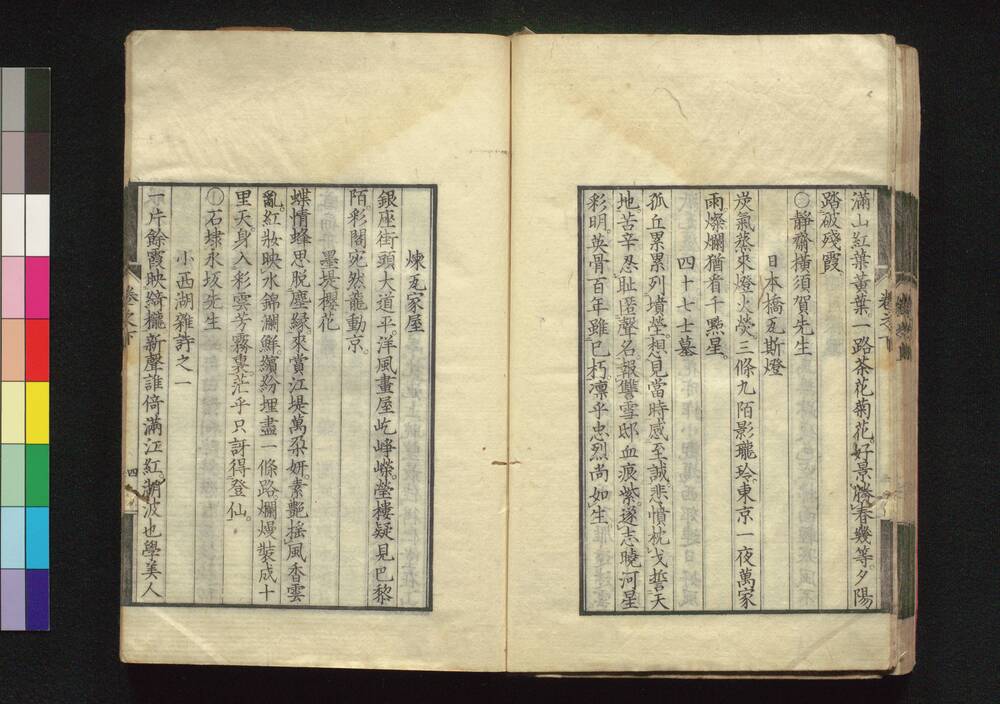 滿山紅葉黃葉。一路茶花菊花。好景勝春幾等。夕陽
踏破殘霞
○靜齋橫須賀先生
日本橋瓦斯燈
炭氣蒸來燈火熒。三條九陌影瓏玲。東京一夜萬家
雨。燦爛猶看千點星。
四十七士墓
孤丘累累列墳塋。想見當時感至誠。悲憤枕戈誓天
地。苦辛忍恥匿聲名。報讐雪邸血痕紫。遂志曉河星
彩明。英骨百年雖已朽。凛乎忠烈尚如生。
卷之下
煉瓦家屋
銀座街頭大道平。洋風畫屋屹崢嶸。瑩樓疑見巴黎
陌。彩閣宛然龍動京。
墨堤櫻花
蝶情蜂思脫塵緣。來賞江堤萬朶妍。素艷搖風香雲
亂。紅妝映水錦瀾鮮。繽紛埋盡一條路。爛熳裝成十
里天。身入彩雲芳霧裏。茫乎只訝得登仙。
○石埭永坂先生
小西湖雜詩之一
一片餘霞映綺櫳。新聲誰倚滿江紅。湖波也學美人
卷之下
四